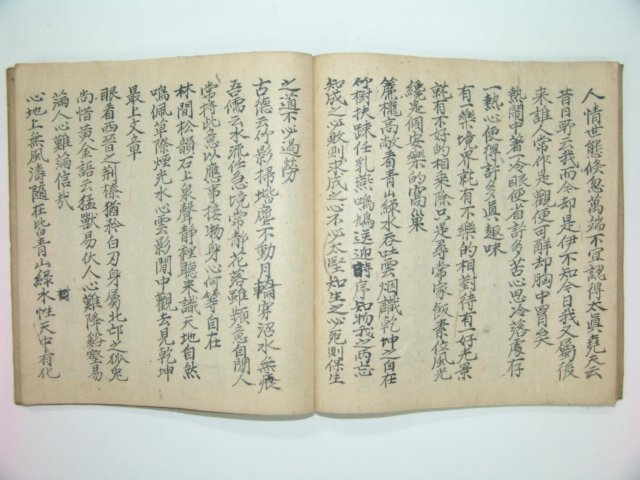 人情世態倏忽萬端不宜認得太眞堯夫云
昔日所云我而今却是伊不知今日我又屬後
來誰人常作是觀便可解却胸中罥矣
熱鬧中著一冷眼便省許多苦心思冷落處存
一熱心便得許多眞趣味
有一樂境界就有不樂的相對待有一好光景
就有不好的相乘除只是尋常家飯素位風光
纔是個安樂的窩巢
簾櫳高敞看青山綠水吞吐雲烟識乾坤之自在
竹樹扶踈任乳燕鳴鳩送迎時序知物我之兩忘
知成之必敗則求成之心不必太堅知生之必死則保生
之道不必過勞
古德云竹影掃堦塵不動月輪穿沼水無痕
吾儒云水流任急境常靜花落雖頻意自閒人
常將此意以應事接物身心何等自在
林間松韻石上泉聲靜裡聽來識天地自然
鳴佩草際煙光水心雲影閒中觀去見乾坤
最上文章
眼看西晉之荊榛猶矜白刃身屬北邙之狐兔
尚惜黃金語云猛獸易伏人心難降谿壑易
滿人心難滿信哉
心地上無風濤隨在皆青山綠水性天中有化